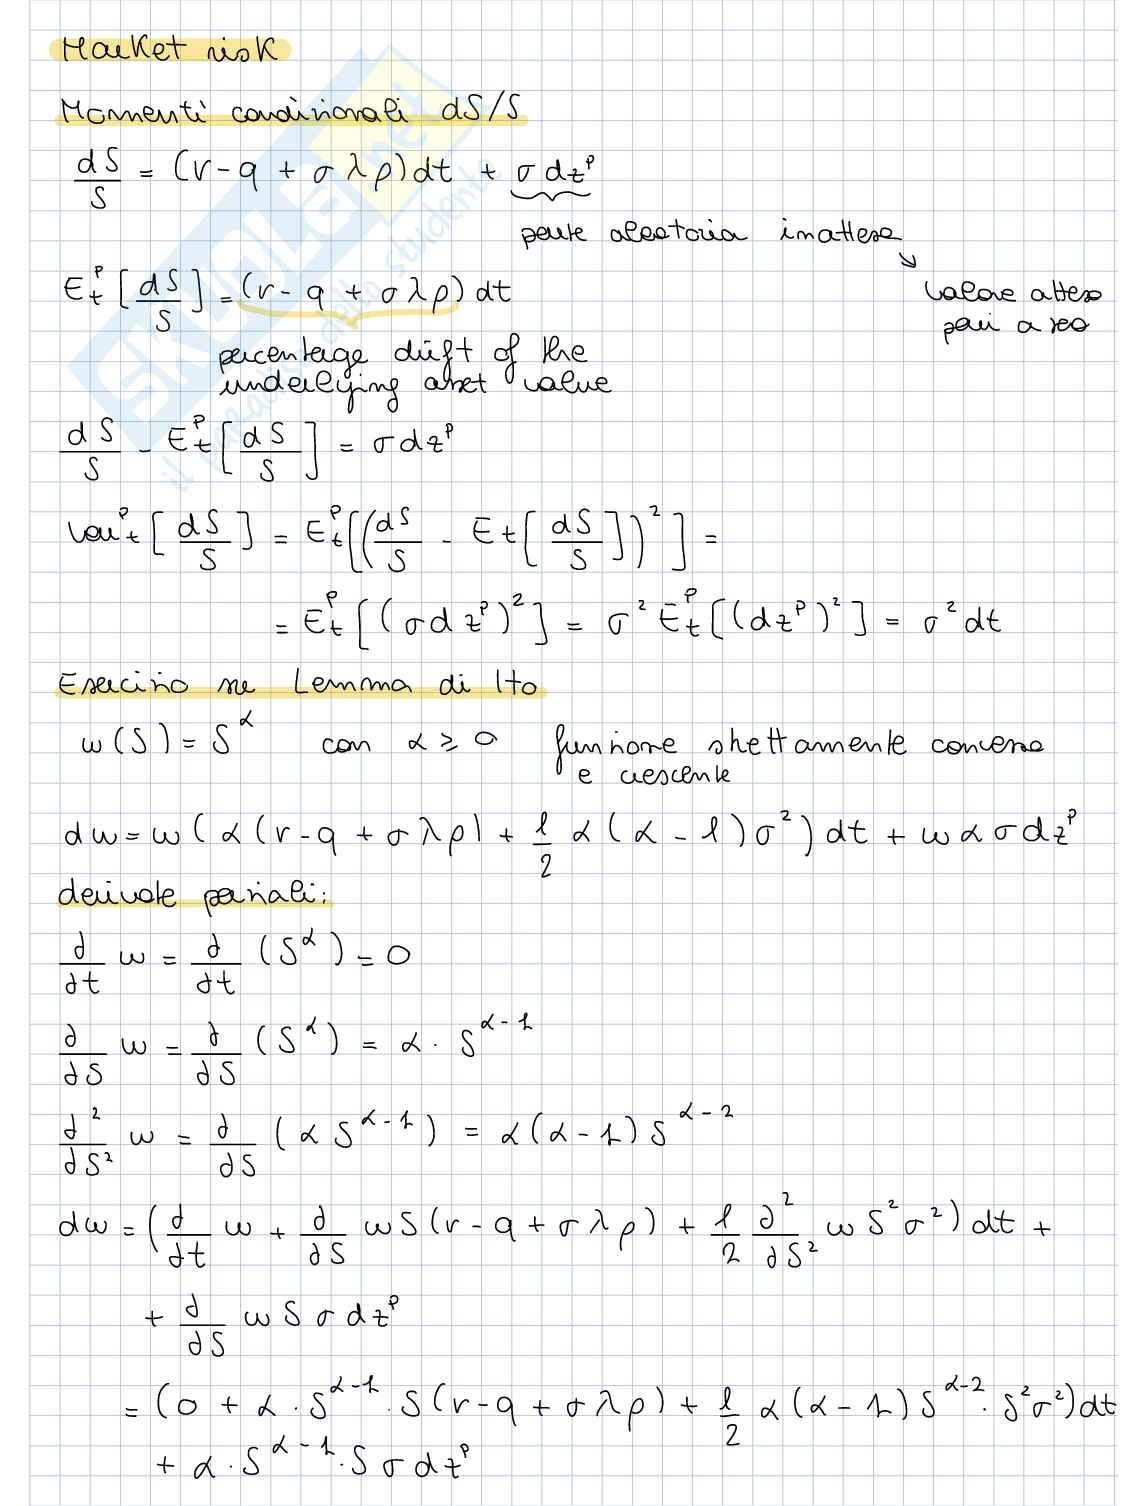 Market risk
Momenti condizionali dS/S
dS/S = (r - q + σλρ)dt + σdz^P
parte aleatoria inattesa
E_t^P [dS/S] = (r - q + σλρ)dt
valore atteso
pari a zero
percentage drift of the
underlying asset value
dS/S - E_t^P [dS/S] = σdz^P
Var_t^P [dS/S] = E_t^P [(dS/S - E_t [dS/S])^2] =
= E_t^P [(σdz^P)^2] = σ^2 E_t^P [(dz^P)^2] = σ^2 dt
Esercizio su Lemma di Ito
w(S) = S^α con α ≥ 0 funzione strettamente convessa
e crescente
dw = w(α(r - q + σλρ) + 1/2 α(α - 1)σ^2)dt + wασdz^P
derivate parziali:
∂/∂t w = ∂/∂t (S^α) = 0
∂/∂S w = ∂/∂S (S^α) = α · S^(α-1)
∂^2/∂S^2 w = ∂/∂S (αS^(α-1)) = α(α-1)S^(α-2)
dw = (∂/∂t w + ∂/∂S wS(r - q + σλρ) + 1/2 ∂^2/∂S^2 wS^2σ^2)dt +
+ ∂/∂S wSσdz^P
= (0 + α · S^(α-1) · S(r - q + σλρ) + 1/2 α(α-1)S^(α-2) · S^2σ^2)dt
+ α · S^(α-1) · Sσdz^P
SKUOLA.net
il paradiso dello studente